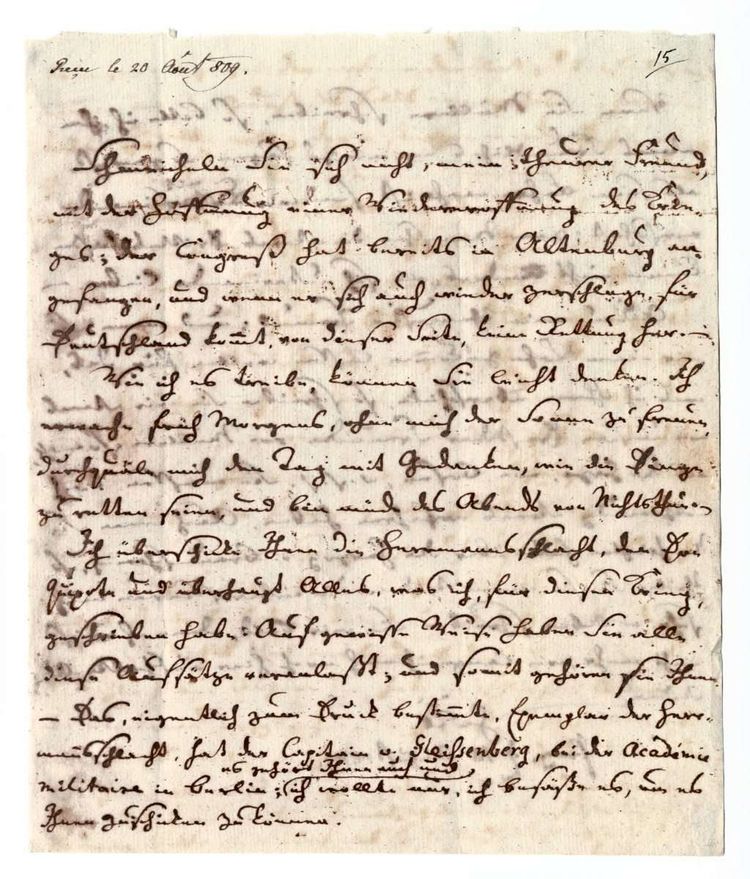 le 20 Août 809.
15
Schmeicheln Sie sich nicht, mein theurer Freund,
mit der Hoffnung einer Wiedereröffnung des Krie-
ges; der Congreß hat bereits in Altenburg an-
gefangen, und wenn er sich auch wieder zerschlage, für
Deutschland kommt, von dieser Seite, keine Rettung her.
Wie ich es treibe, können Sie leicht denken. Ich
erwache früh Morgens, ohne mich der Sonne zu freuen,
durchquäle mich den Tag mit Gedanken, wie die Dinge
zu retten seien, und bin müde des Abends von Nichtsthun.
Ich überschicke Ihnen die Herrmannsschlacht, den
und überhaupt Alles, was ich, für diesen Krieg,
geschrieben habe. Auf gewisse Weise haben Sie alle
diese Aufsätze veranlaßt; und somit gehören sie Ihnen
— Das, eigentlich zum Druck bestimmte, Exemplar der Herr-
mannsschlacht, hat der Capitain v. Gleissenberg, bei der Académie
es gehört Ihnen auch und
militaire in Berlin; ich wollte nur, ich besäße es, um es
Ihnen zuschicken zu können.